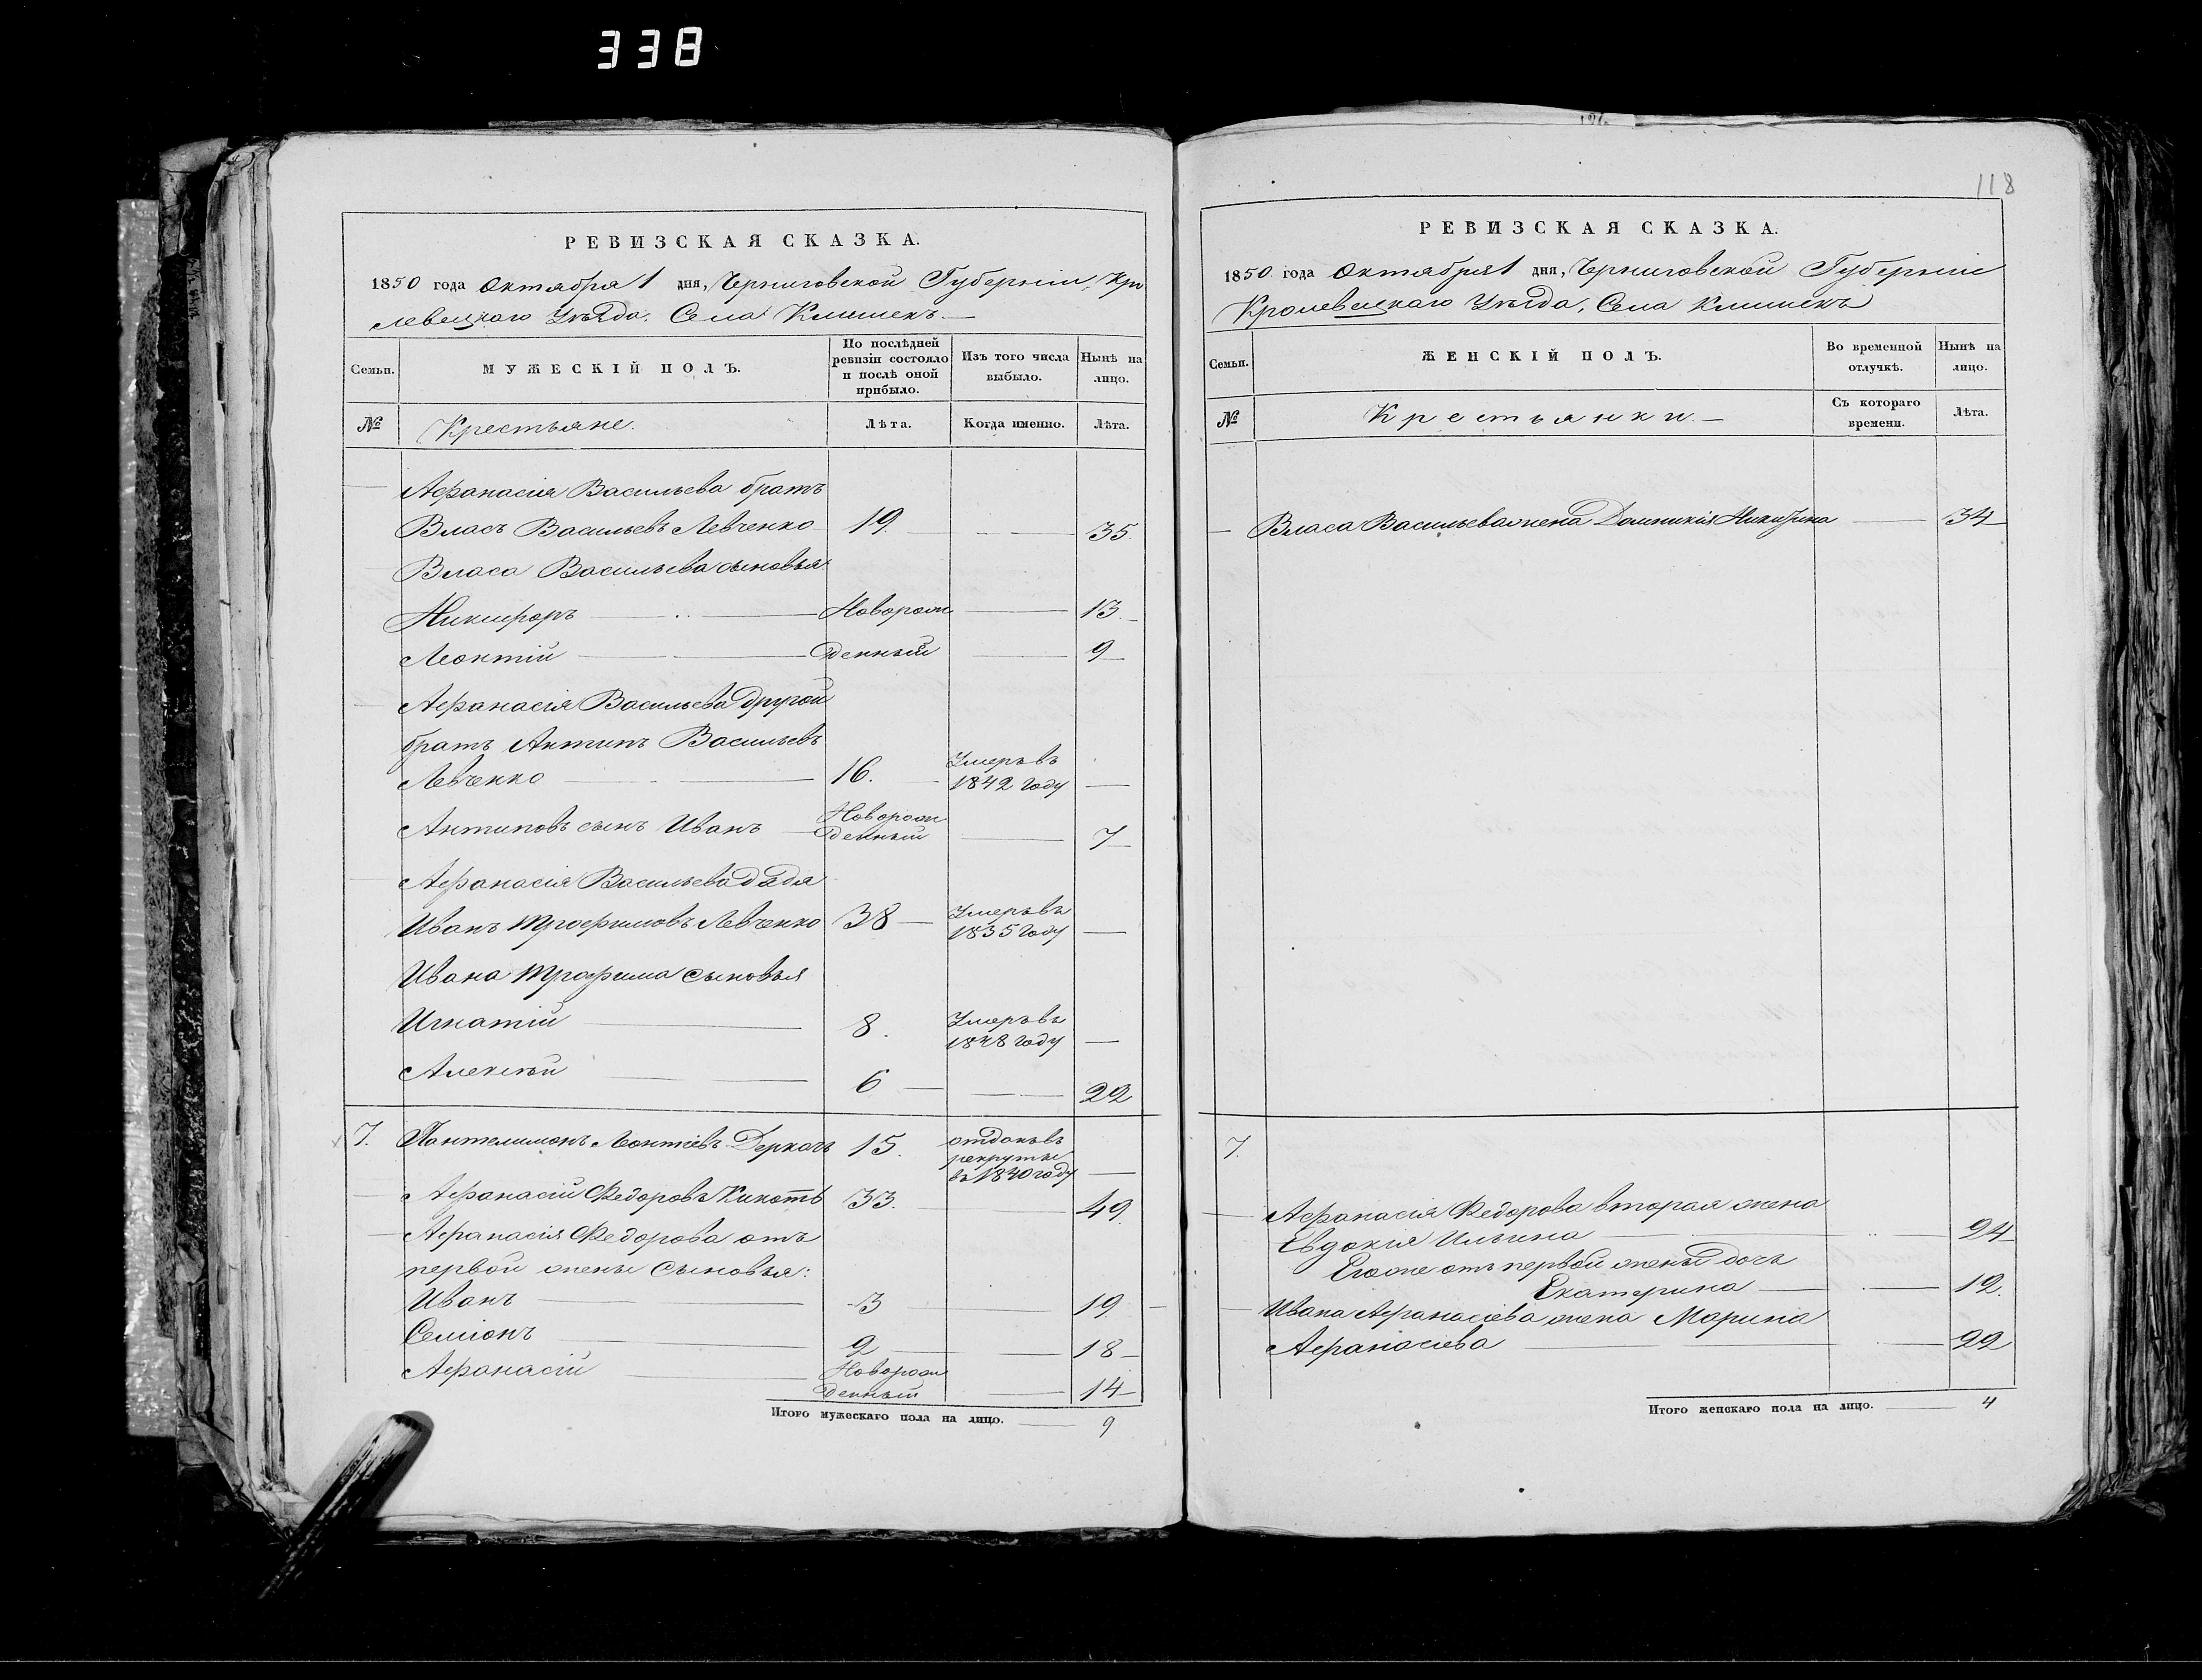 338
118
РЕВИЗСКАЯ СКАЗКА.
1850 года Октября 1 дня, Черниговской Губерніи, Кро
левецкаго Уѣзда. Села Клишекъ.
Семьи.
МУЖЕСКІЙ ПОЛЪ.
По послѣдней
ревизіи состояло
и послѣ оной
прибыло.
Изъ того числа
выбыло.
Нынѣ на
лицо.
№
Крестьяне.
Лѣта.
Когда именно.
Лѣта.
Афанасія Васильева братъ
Власъ Васильевъ Левченко 19 35.
Власа Васильева сыновья
Никифоръ Новорож 13.
Леонтій денный 9
Афанасія Васильева другой
братъ Антипъ Васильевъ
Левченко 16. Умеръ въ 1842 году
Антиповъ сынъ Иванъ Новорож денный 7
Афанасія Васильева дядя
Иванъ Трофимовъ Левченко 38 Умеръ въ 1835 году
Ивана Трофима сыновья
Игнатій 8. Умеръ въ 1848 году
Алексѣй 6 22
7. Пантелимонъ Леонтіевъ Деркачь 15. отданъ въ рекруты въ 1840 году
Афанасій Федоровъ Кикоть 33. 49.
Афанасія Федорова отъ
первой жены Сыновья:
Иванъ 3 19
Семіонъ 2 18
Афанасій Новорож денный 14
Итого мужескаго пола на лицо. 9
РЕВИЗСКАЯ СКАЗКА.
1850 года Октября 1 дня, Черниговской Губерніи
Кролевецкаго Уѣзда, Села Клишекъ
Семьи.
ЖЕНСКІЙ ПОЛЪ.
Во временной
отлучкѣ.
Нынѣ на
лицо.
№
Крестьянки.
Съ котораго
времени.
Лѣта.
Власа Васильева жена Домникія Никифорова 34
7.
Афанасія Федорова вторая жена
Евдокія Ильина 24
Егоже отъ первой жены дочь
Екатерина 12.
Ивана Афанасіева жена Марина
Афанасіева 22
Итого женскаго пола на лицо. 4